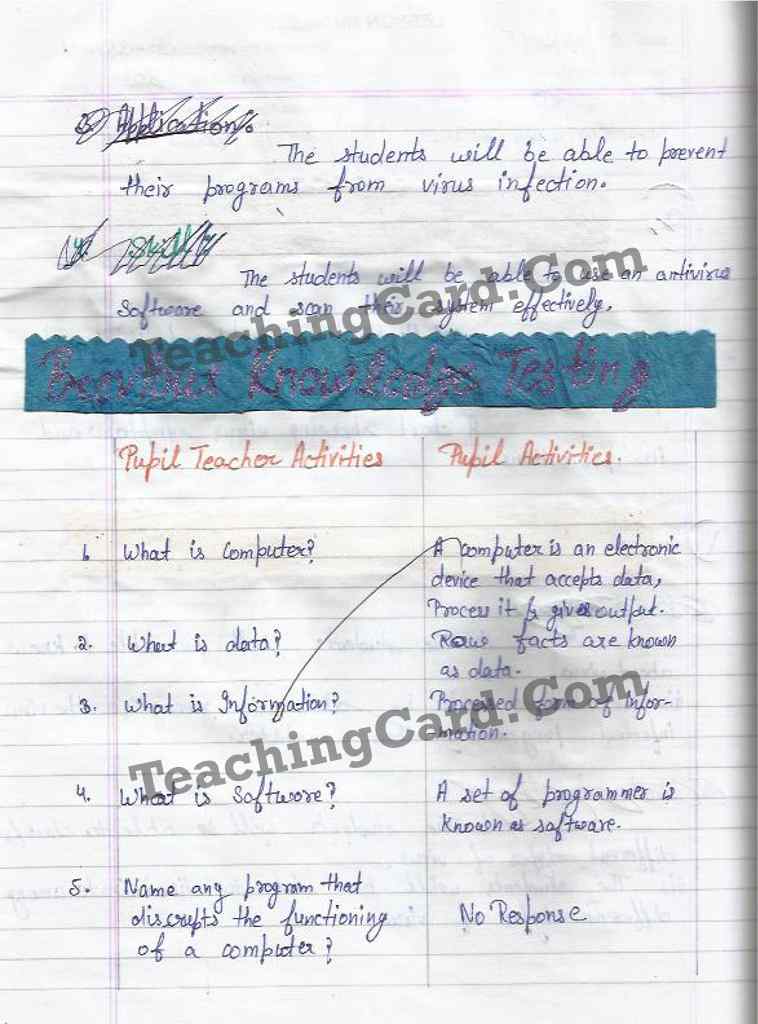 3) Application:
The students will be able to prevent
their programs from virus infection.
4.
The students will be able to use an antivirus
software and scan their system effectively.
TeachingCard.Com
Knowledge Testing
Pupil Teacher Activities
Pupil Activities.
1. What is computer?
A computer is an electronic
device that accepts data,
Process it & gives output.
2. What is data?
Raw facts are known
as data.
3. What is Information?
Processed form of infor-
mation.
TeachingCard.Com
4. What is Software?
A set of programmer is
known as software.
5. Name any program that
discrupts the functioning
of a computer?
No Response